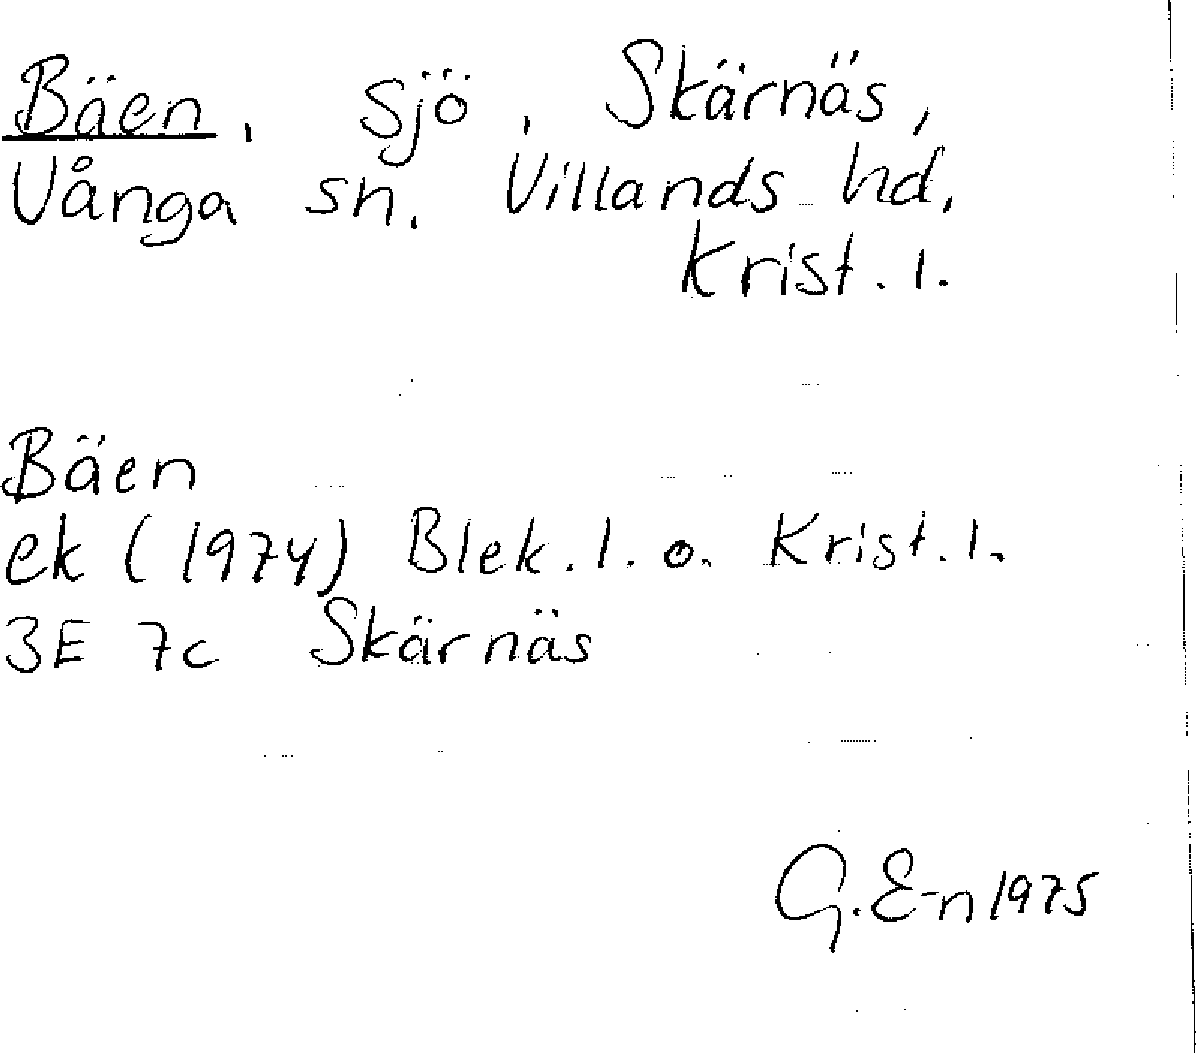 Bäen, sjö, Skärnäs,
Vånga sn. Villands hd,
Krist. l.
Bäen
ek (1974) Blek. l. o. Krist. l.
3E 7c Skärnäs
G. E-n 1975